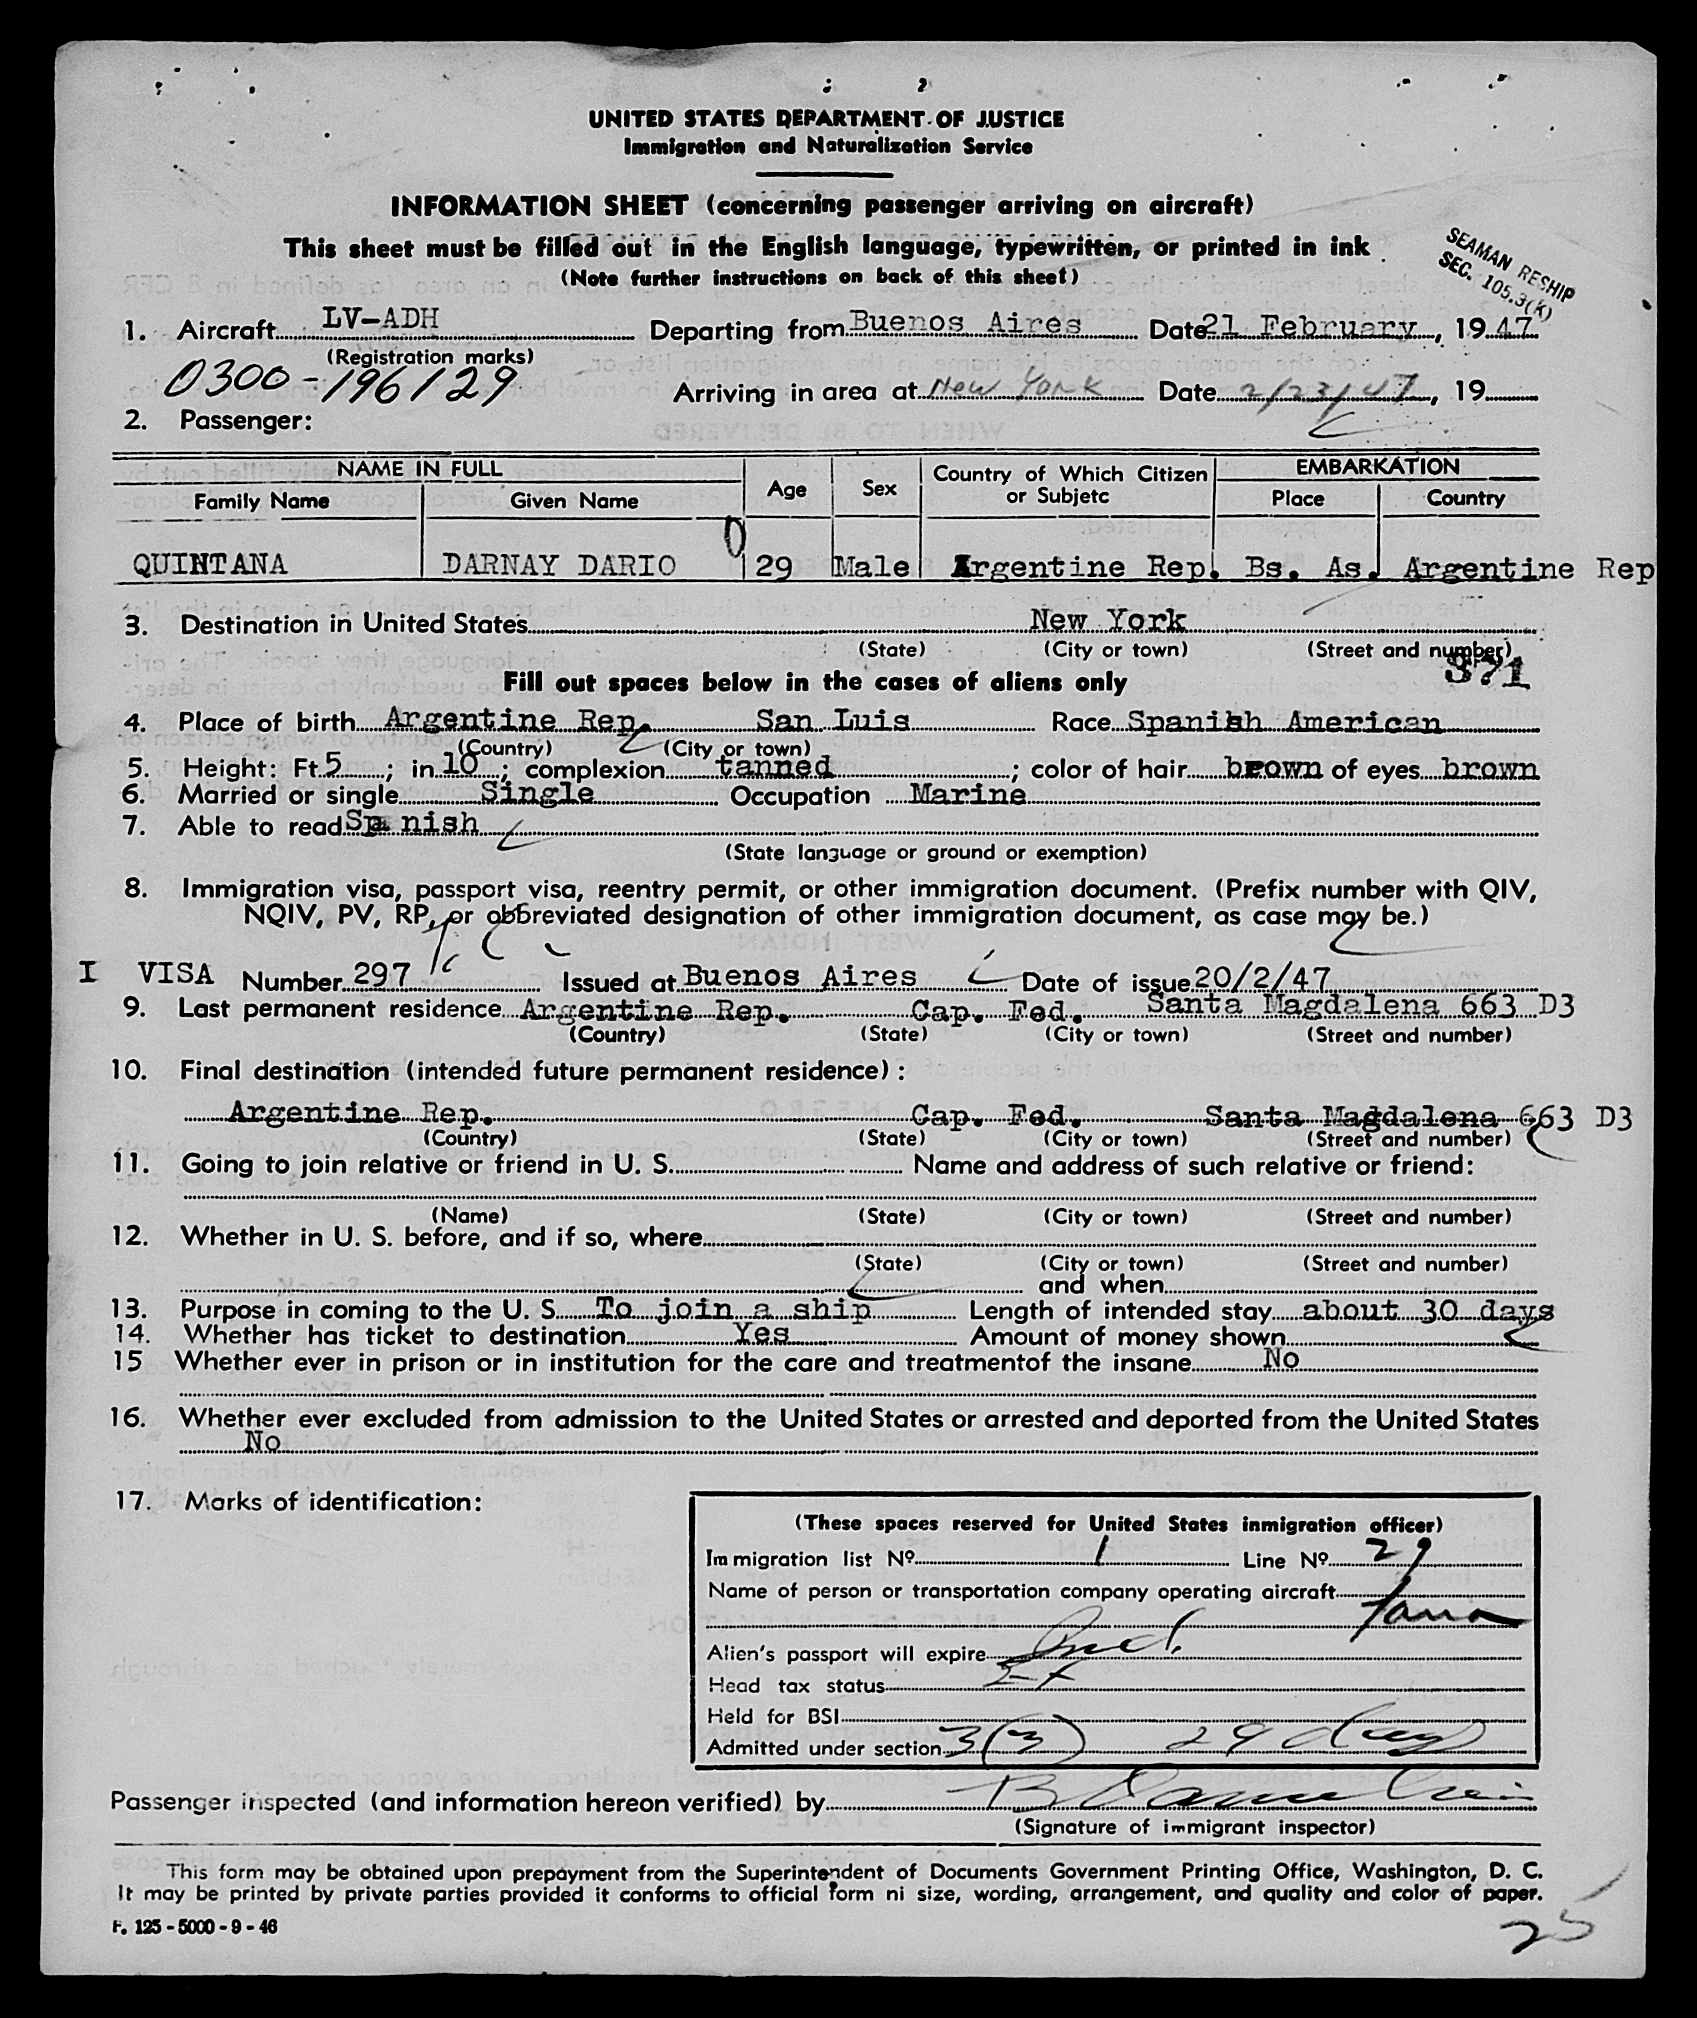 UNITED STATES DEPARTMENT OF JUSTICE
Immigration and Naturalization Service
INFORMATION SHEET (concerning passenger arriving on aircraft)
This sheet must be filled out in the English language, typewritten, or printed in ink
(Note further instructions on back of this sheet)
SEAMAN RESHIP
SEC. 105.3(K)
1. Aircraft LV-ADH Departing from Buenos Aires Date 21 February, 1947
(Registration marks)
0300-196129
Arriving in area at New York Date 2/23/47, 19
2. Passenger:
NAME IN FULL Age Sex Country of Which Citizen or Subjetc EMBARKATION
Family Name Given Name Place Country
QUINTANA DARNAY DARIO 29 Male Argentine Rep. Bs. As. Argentine Rep
3. Destination in United States New York
(State) (City or town) (Street and number)
371
Fill out spaces below in the cases of aliens only
4. Place of birth Argentine Rep. San Luis Race Spanish American
(Country) (City or town)
5. Height: Ft. 5; in 10; complexion tanned; color of hair brown of eyes brown
6. Married or single Single Occupation Marine
7. Able to read Spanish
(State language or ground or exemption)
8. Immigration visa, passport visa, reentry permit, or other immigration document. (Prefix number with QIV,
NQIV, PV, RP, or abbreviated designation of other immigration document, as case may be.)
I VISA Number 297 Issued at Buenos Aires Date of issue 20/2/47
9. Last permanent residence Argentine Rep. Cap. Fed. Santa Magdalena 663 D3
(Country) (State) (City or town) (Street and number)
10. Final destination (intended future permanent residence) :
Argentine Rep. Cap. Fed. Santa Magdalena 663 D3
(Country) (State) (City or town) (Street and number)
11. Going to join relative or friend in U. S. Name and address of such relative or friend:
(Name) (State) (City or town) (Street and number)
12. Whether in U. S. before, and if so, where
(State) (City or town) (Street and number)
and when
13. Purpose in coming to the U. S. To join a ship Length of intended stay about 30 days
14. Whether has ticket to destination Yes Amount of money shown
15 Whether ever in prison or in institution for the care and treatmentof the insane No
16. Whether ever excluded from admission to the United States or arrested and deported from the United States
No
17. Marks of identification:
(These spaces reserved for United States inmigration officer)
Immigration list Nº 1 Line Nº 29
Name of person or transportation company operating aircraft
Fama
Alien's passport will expire
Head tax status
Held for BSI
Admitted under section 3(3) 29 days
Passenger inspected (and information hereon verified) by
(Signature of immigrant inspector)
This form may be obtained upon prepayment from the Superintendent of Documents Government Printing Office, Washington, D. C.
It may be printed by private parties provided it conforms to official form ni size, wording, arrangement, and quality and color of paper.
F. 125 - 5000 - 9 - 46
25